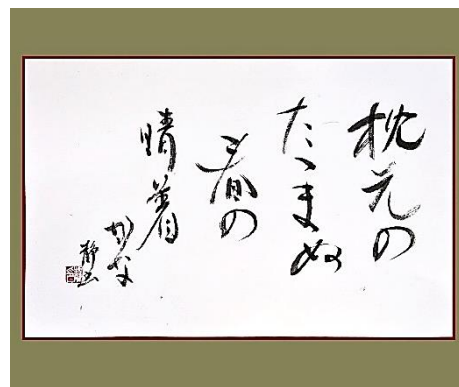 枕元の
たゝまぬ
春の
晴着
かな
静